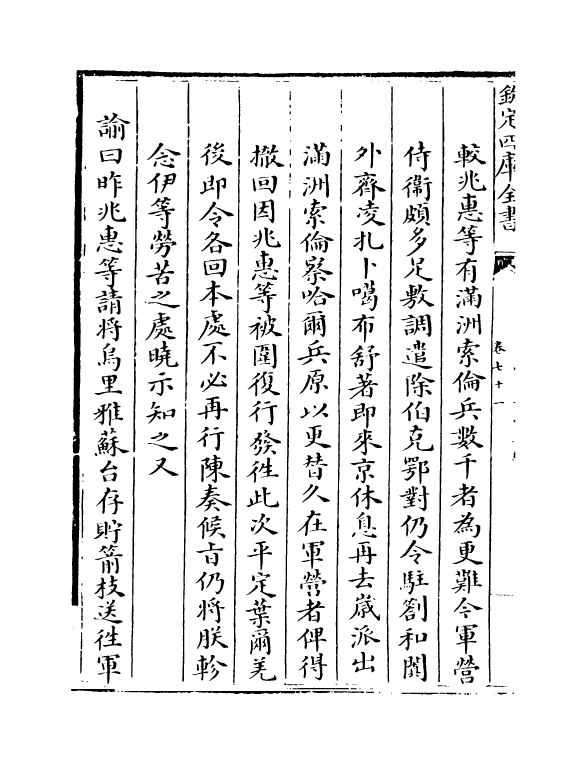 欽定四庫全書
卷七十一
較兆惠等有滿洲索倫兵數千者為更難今軍營
侍衛頗多足敷調遣除伯克鄂對仍令駐劄和闐
外齊凌扎卜噶布舒著即來京休息再去嵗派出
滿洲索倫察哈爾兵原以更替久在軍營者俾得
撤回因兆惠等被圍復行發徃此次平定葉爾羌
後即令各回本處不必再行陳奏候㫖仍將朕軫
念伊等勞苦之處曉示知之又
諭曰昨兆惠等請將烏里雅蘇台存貯箭枝送徃軍